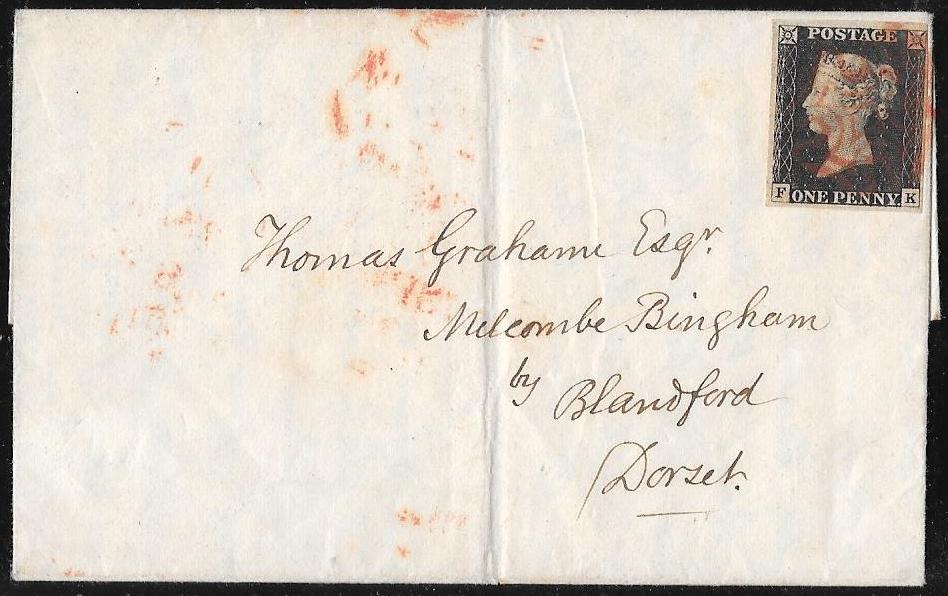 POSTAGE
F ONE PENNY K
Thomas Grahame Esqr
Melcombe Bingham
by
Blandford
Dorset.